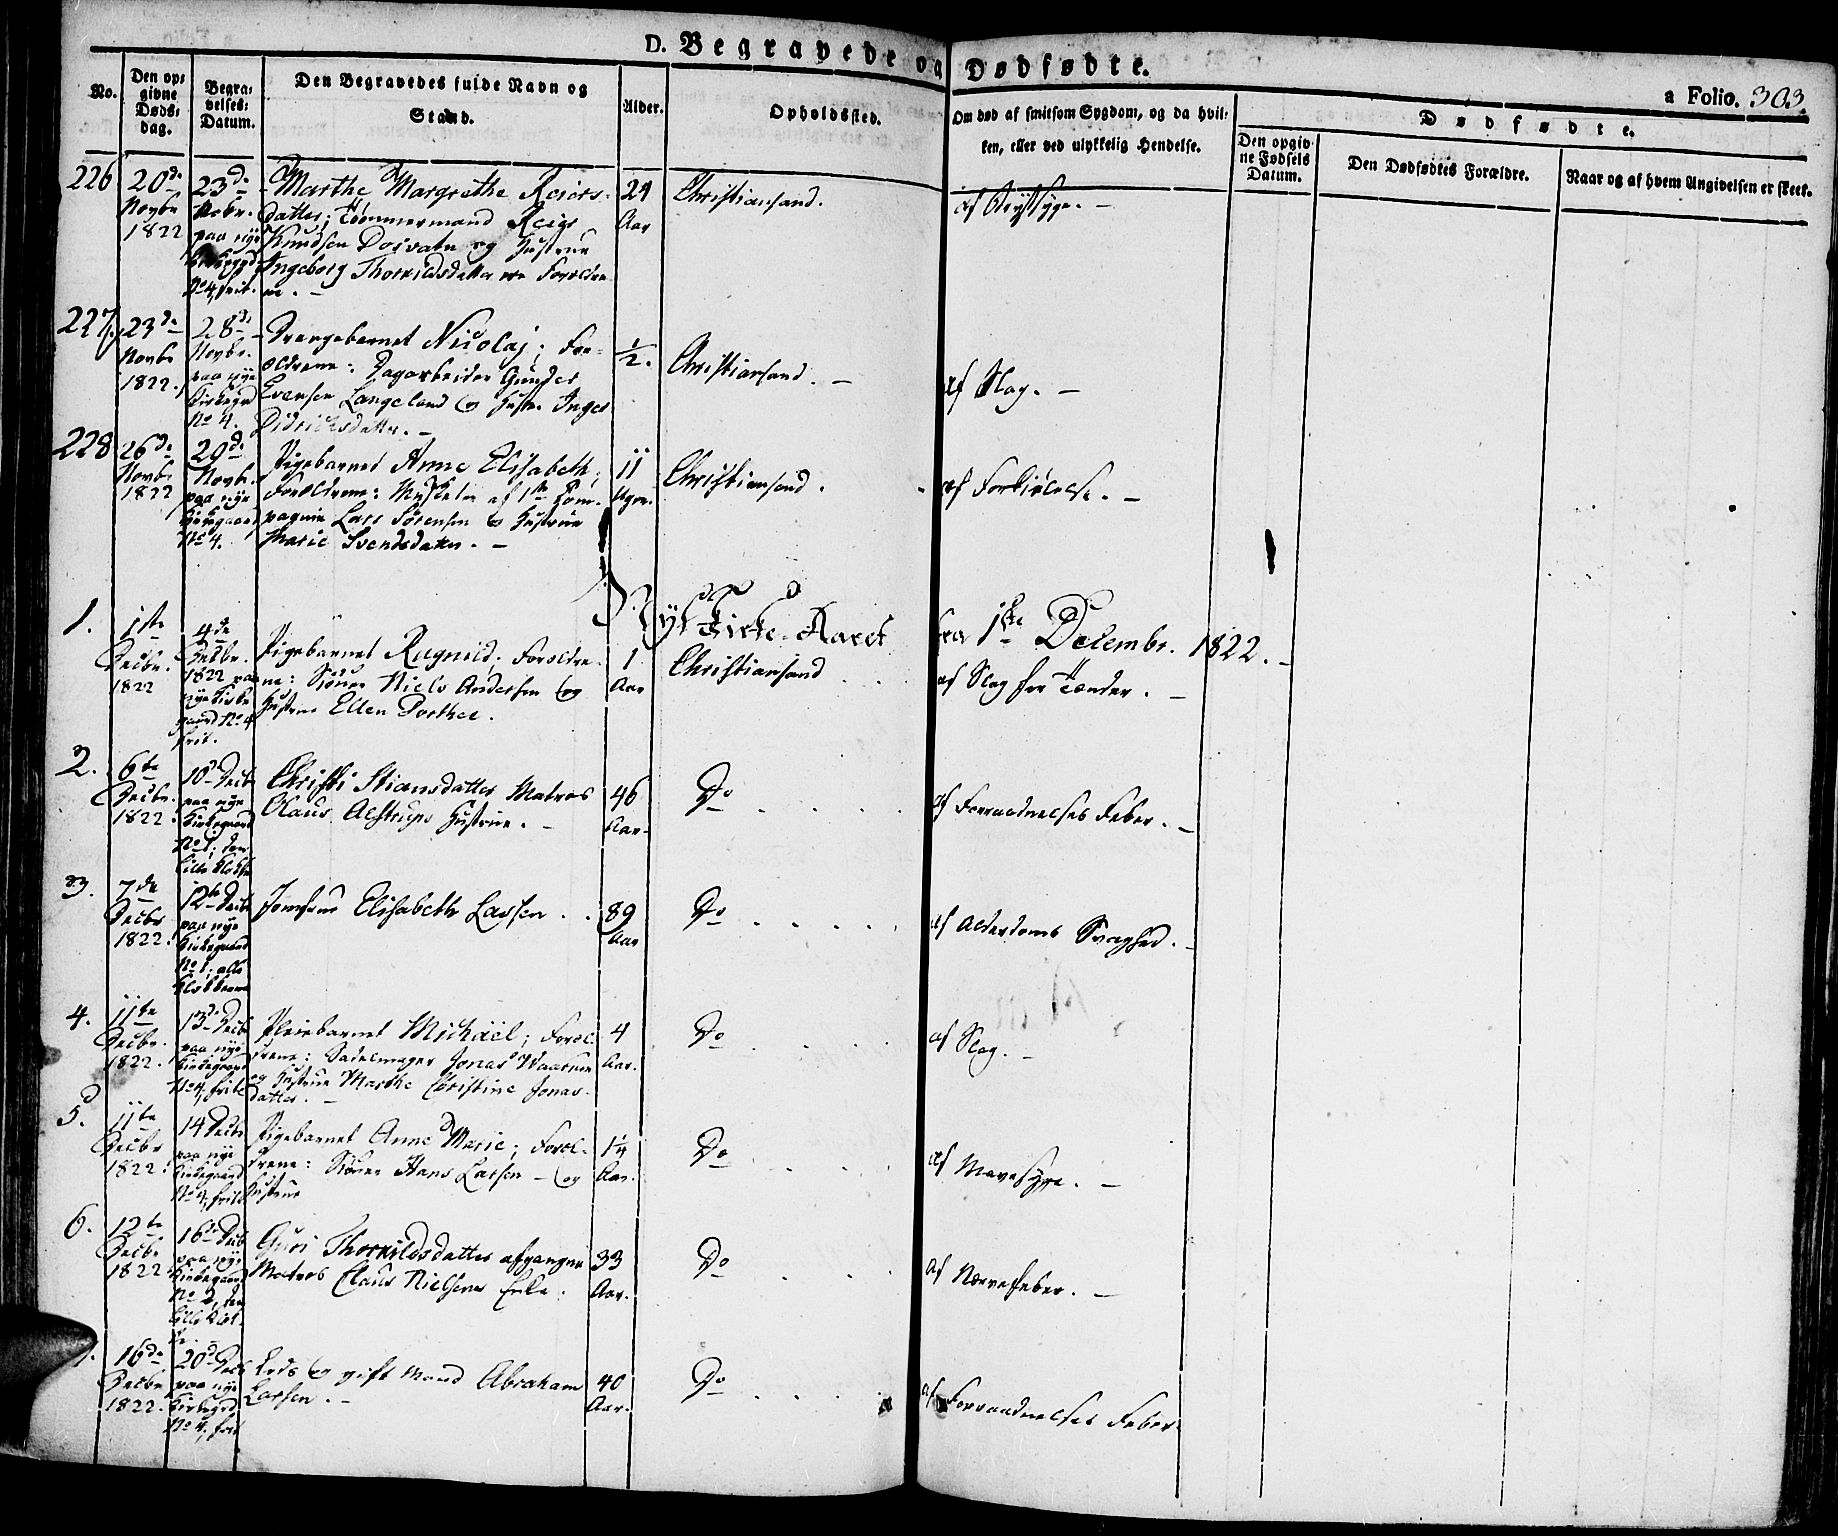 D. Begravede og Dødfødte.
a Folio. 303.
No.
Den op-
givne
Døds-
dag.
Begra-
velses-
Datum.
Den Begravedes fulde Navn og
Stand.
Alder.
Opholdssted.
Om død af smitsom Sygdom, og da hvil-
ken, eller ved ulykkelig Hendelse.
Dødfødte.
Den opgiv-
ne Fødsels
Datum.
Den Dødfødtes Forældre.
Naar og af hvem Angivelsen er skeet.
226
20de
Novbr
1822
23de
Novbr.
paa nye
No 4, frit.
Marthe Margrethe Reiers-
datter; Tømmermand Reier
Knudsen Dosvatn og Hustrue
Ingeborg Thorkildsdatter ere Foreldre
ne. -
24
Aar
Christiansand.
af Brystsyge. -
227.
23de
Novbr
1822.
28de
Novbr.
paa nye
Kirkegrd
No 4.
Drengebarnet Nicolaj; For-
ældrene: Dagarbeider Gunder
Evensen Langeland og Hustr. Inger
Didrichsdatter. -
1/2.
Christiansand. -
af Slag. -
228
26de
Novbr
1822
29de
Novb.
paa nye
Kirkegaard
No 4.
Pigebarnet Anne Elisabeth,
Forældrene: Musketer af 1ste Com-
pagnie Lars Sørensen og Hustrue
Marie Svendsdatter. -
11
Ugr.
Christiansand.
af Forkiølelse. -
Nyt Kirke-Aaret fra 1ste Decembr. 1822. -
1.
1ste
Decbr.
1822
4de
Decbr.
1822 paa
nye Kirke
gaard No 4
frit.
Pigebarnet Ragnild. Foreldre-
ne: Siøma Niels Andersen og
Hustrue Ellen Dorthea.
1
Aar
Christiansand
af Slag for Tænder. -
2.
6te
Decbr.
1822.
10de Decb
paa nye
Kirkegaard
No 1; den
lille Klokke
Christi Stiansdatter Matros
Claus Alstrups Hustrue. -
46
Aar.
Do
af Forraadnelses Feber. -
3.
7de
Decbr
1822.
12te Decbr
paa nye
Kirkegaard
No 1; alle
Klokkerne
Jomfrue Elisabeth Lassen.
89
Aar
Do
af Alderdoms Svaghed. -
4.
11te
Decbr.
1822.
13de Decb
paa nye
Kirkegaard
No 4, frit
Pleiebarnet Michäel; Foræl-
drene: Sadelmager Jonas Waarum
og Hustrue Marthe Christine Jonas-
datter. -
4
Aar.
Do
af Slag. -
5.
11te
Decbr
1822.
14 Decbr
paa nye
Kirkegaard
No 4, frit
Pigebarnet Anne Marie; Foræl-
drene: Siøma Hans Larsen - og
Hustrue
1 1/4
Aar.
Do
af Mavesyge. -
6.
12te
Decbr
1822.
16de Decb
paa nye
Kirkegaard
No 2, den
lille Klok-
ke. -
Guri Thorkildsdatter afgangne
Matros Claus Nielsens Enke.
33
Aar.
Do
af Nervefeber. -
16de
Decbr
1822.
20de Decb
paa nye
Kirkegrd
No 4, frit
og gift Mand Abraham
Larsen. -
40
Aar.
Do
af Forraadnelses Feber.